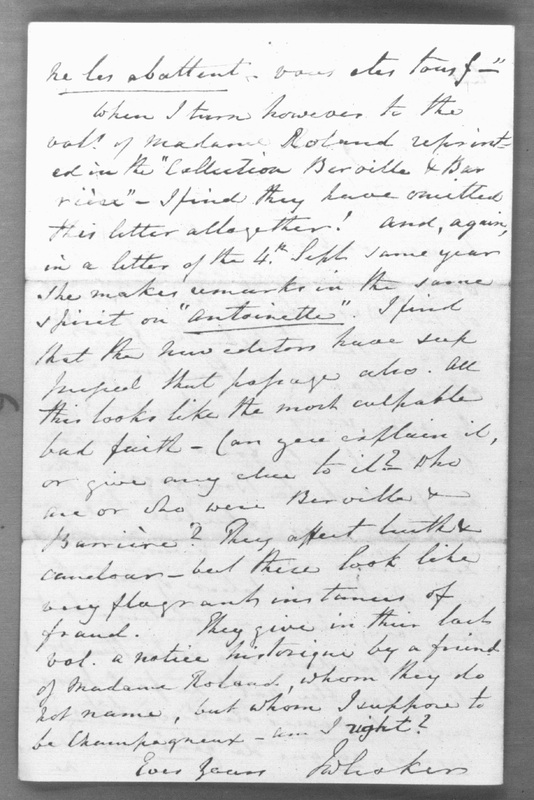 ne les abattent – vous etes tous f–"
When I turn however to the
vol.s of Madame Roland reprint-
ed in the "Collection Berville & Bar
rière" – I find they have omitted
this letter altogether! And, again,
in a letter of the 4.th Sept. same year
she makes remarks in the same
spirit on "Antoinette". I find
that the new editors have sup
pressed that passage also. All
this looks like the most culpable
bad faith – Can you explain it,
or give any clue to it? Who
are or who were Berville &
Barrière? They affect truth &
candour – but these look like
very flagrant instances of
fraud. They give in their last
vol. a notice historique by a friend
of Madame Roland, whom they do
not name, but whom I suppose to
be Champagneux – am I right?
Ever Yours JWCroker